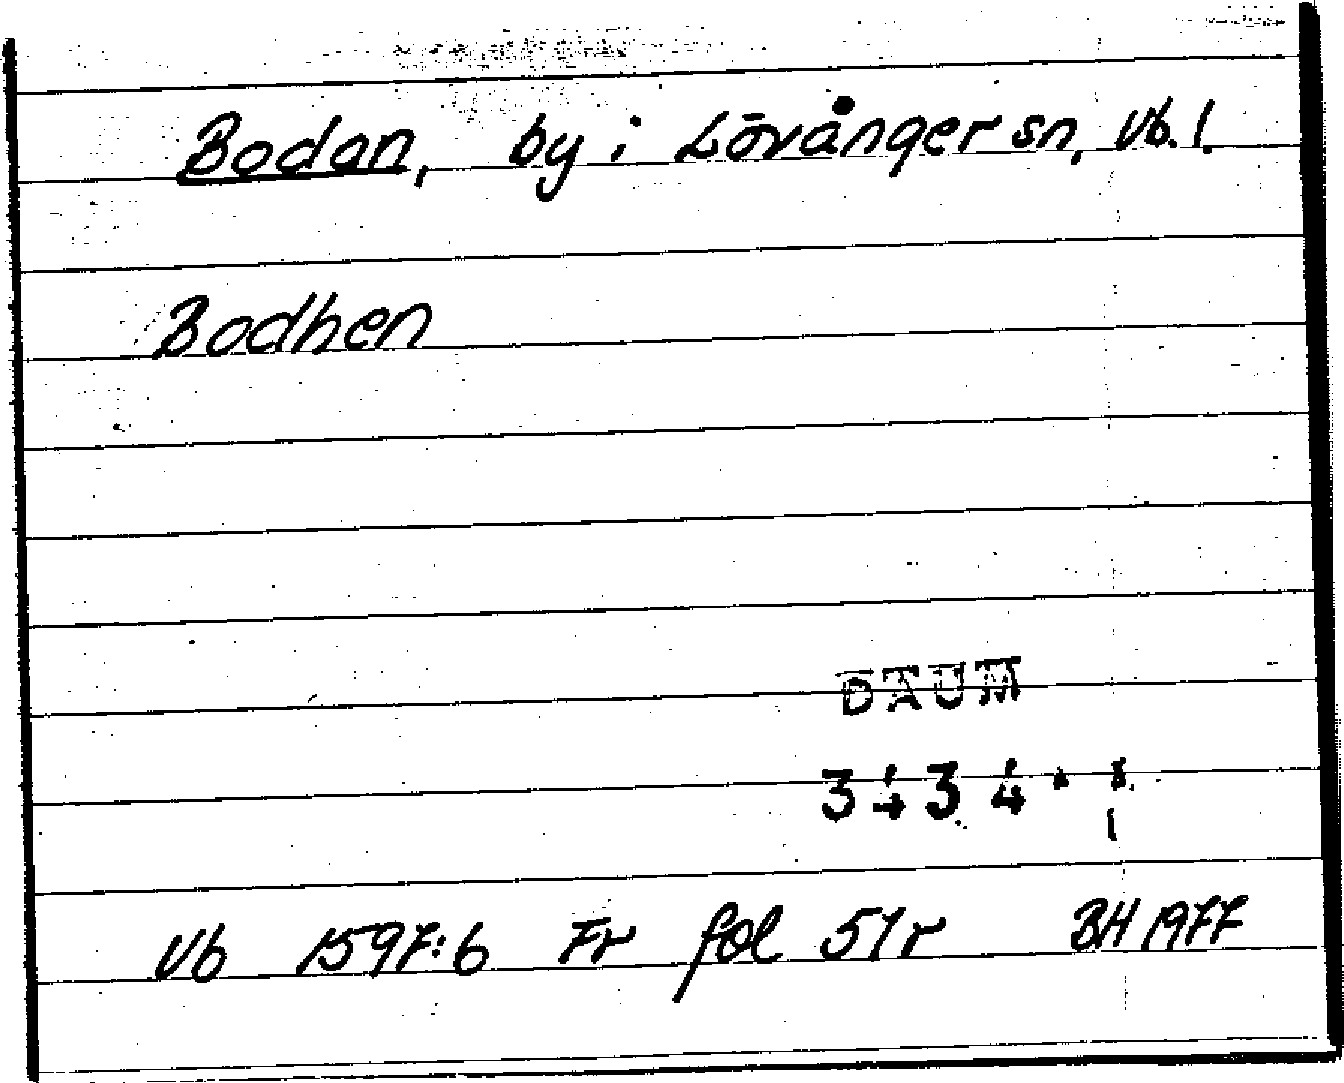 Bodan, by i Lövånger sn, Vb. l.
Bodhen
DAUM
3434
Vb 1597:6 Fr fol 51r BH 1977